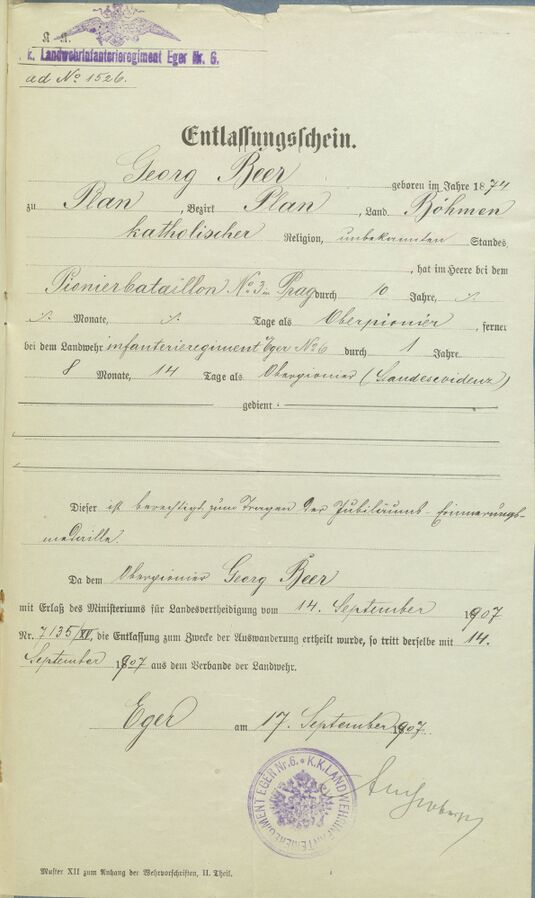 K. K.
k. Landwehrinfanterieregiment Eger Nr. 6.
ad No 1526.
Entlassungsschein.
Georg Beer geboren im Jahre 1874
zu Plan, Bezirk Plan, Land Böhmen
katholischer Religion, unbekannten Standes
, hat im Heere bei dem
Pionierbataillon No 3 in Prag durch 10 Jahre,
Monate, Tage als Oberpionier, ferner
bei dem Landwehrinfanterieregiment Eger No 6 durch 1 Jahre
8 Monate, 14 Tage als Oberpionier (Landesevidenz)
gedient.
Dieser ist berechtigt zum Tragen der Jubiläums-Erinnerungs-
medaille.
Da dem Oberpionier Georg Beer
mit Erlaß des Ministeriums für Landesvertheidigung vom 14. September 1907
Nr. 7135/XV, die Entlassung zum Zwecke der Auswanderung ertheilt wurde, so tritt derselbe mit 14.
September 1907 aus dem Verbande der Landwehr.
Eger am 17. September 1907.
K.K. LANDWEHRINFANTERIEREGIMENT EGER Nr. 6.
Muster XII zum Anhang der Wehrvorschriften, II. Theil.